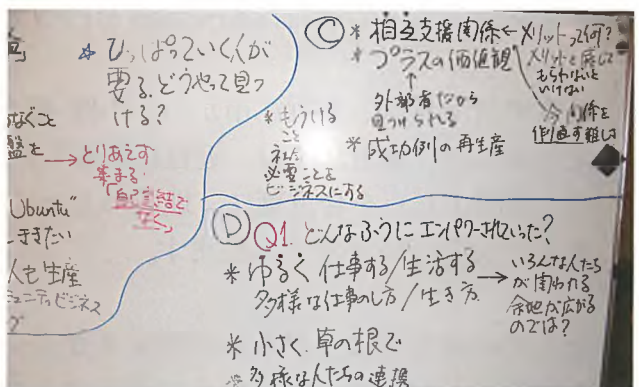 ☆ ひっぱっていく人が
要る、どうやって見つ
ける?
なぐこと
盤を → とりあえず
集まる.
「自己完結で
なく」
Ubuntu"
きたい
人も生産
ュニティビジネス
グ
Ⓒ * 相互支援関係 ← メリットって何?
* プラスの価値観
メリットと感じて
もらわないと
いけない
↑
外部者だから
見つけられる
今の関係を
作り直す難しさ
* もうける
こと
社会
必要なことを
ビジネスにする
* 成功例の再生産
Ⓓ Q1. どんなふうにエンパワーされていった?
* ゆるく 仕事する/生活する →
多様な仕事のし方/生き方
いろんな人たち
が関われる
余地が広がる
のでは?
* 小さく、草の根で
* 多様な人たちの連携